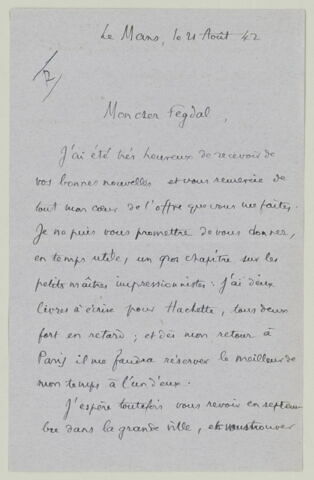 Le Mans, le 21 Août 42
Mon cher Fegdal,
J'ai été très heureux de recevoir de
vos bonnes nouvelles et vous remercie de
tout mon cœur de l'offre que vous me faites.
Je ne puis vous promettre de vous donner,
en temps utile, un gros chapitre sur les
petits maîtres impressionnistes : j'ai deux
livres à écrire pour Hachette, tous deux
fort en retard ; et dès mon retour à
Paris il me faudra réserver le meilleur de
mon temps à l'un d'eux.
J'espère toutefois vous revoir en septem-
bre dans la grande ville, et vous trouver